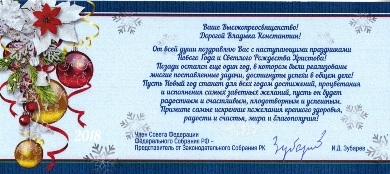 Ваше Высокопреосвященство!
Дорогой Владыка Константин!
От всей души поздравляю Вас с наступающими праздниками
Нового Года и Светлого Рождества Христова!
Позади остался еще один год, в котором были реализованы
многие поставленные задачи, достигнуты успехи в общем деле!
Пусть Новый год станет для всех годом достижений, процветания
и исполнения самых заветных желаний, пусть он будет
радостным и счастливым, плодотворным и успешным.
Примите самые искренние пожелания крепкого здоровья,
радости и счастья, мира и благополучия!
2018
Член Совета Федерации
Федерального Собрания РФ –
Представитель от Законодательного Собрания РК
И.Д. Зубарев